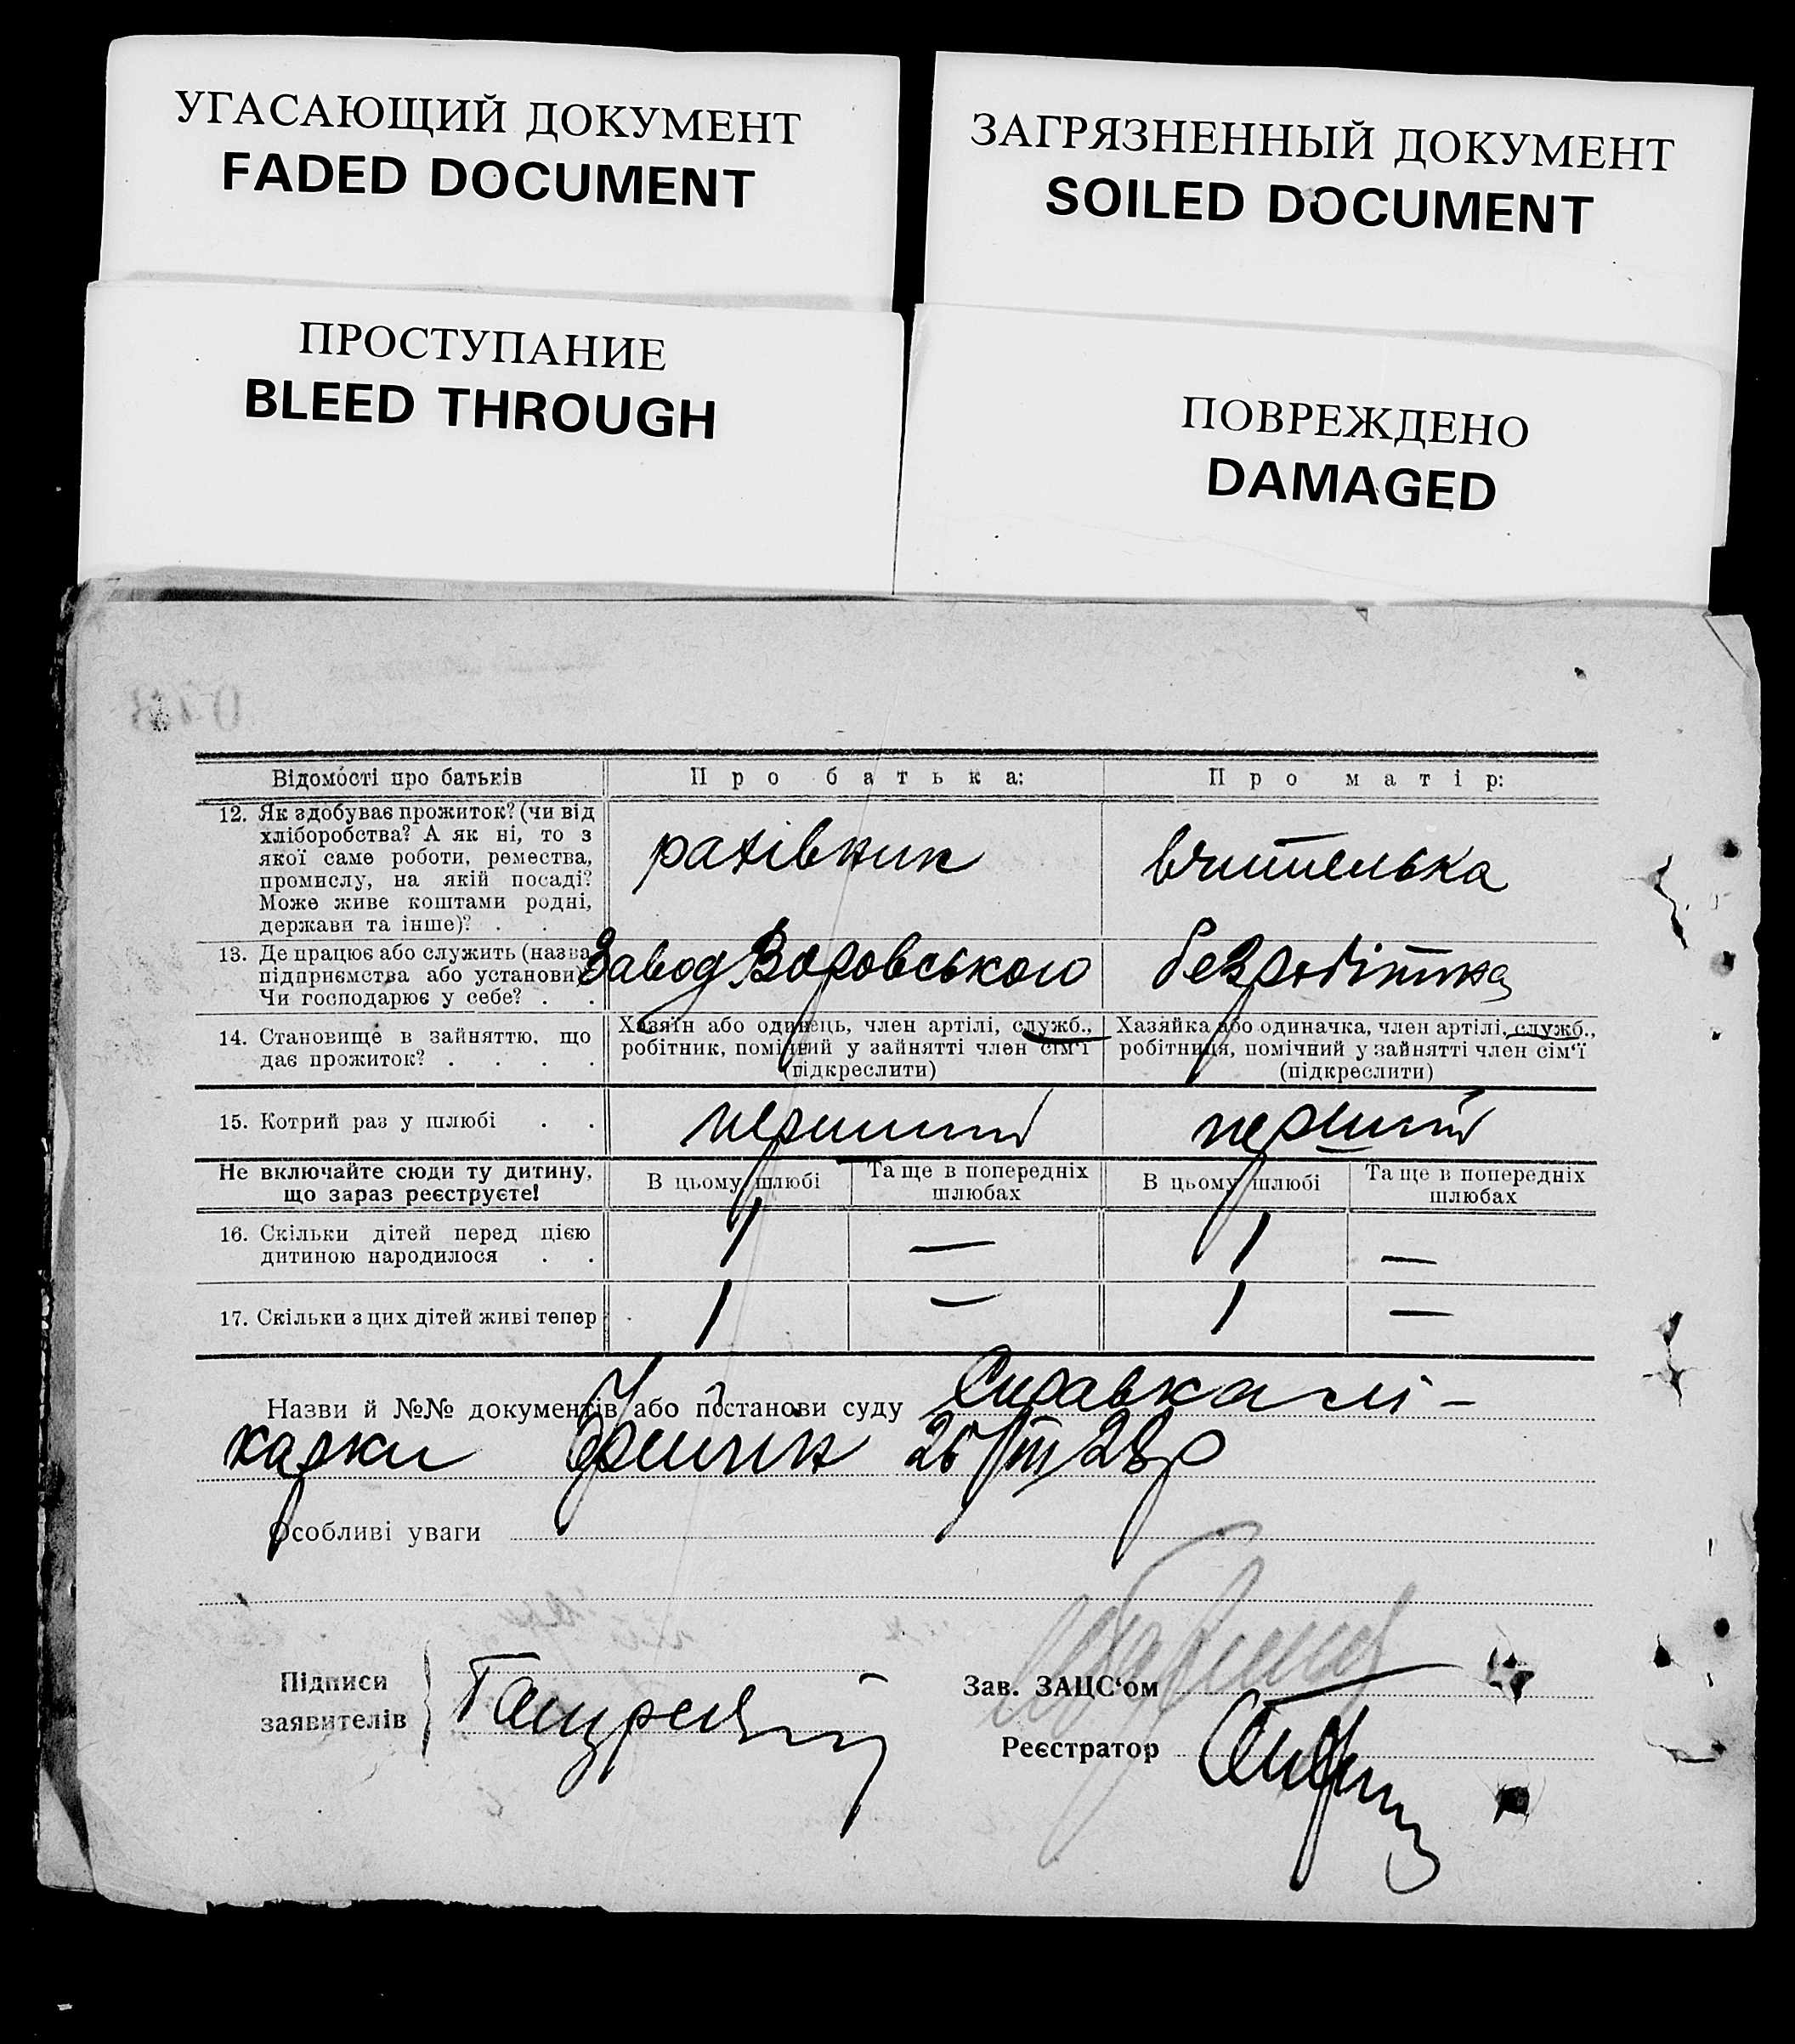 УГАСАЮЩИЙ ДОКУМЕНТ
FADED DOCUMENT
ЗАГРЯЗНЕННЫЙ ДОКУМЕНТ
SOILED DOCUMENT
ПРОСТУПАНИЕ
BLEED THROUGH
ПОВРЕЖДЕНО
DAMAGED
Відомості про батьків
Про батька:
Про матір:
12. Як здобуває прожиток? (чи від
хліборобства? А як ні, то з
якої саме роботи, ремества,
промислу, на якій посаді?
Може живе коштами родні,
держави та інше)? . .
рахівник
вчителька
13. Де працює або служить (назва
підприємства або установи)
Чи господарює у себе? . .
Завод Воровського
безробітна
14. Становище в зайняттю, що
дає прожиток? . . . .
Хазяїн або одинець, член артілі, служб.,
робітник, помічний у зайнятті член сім‘ї
(підкреслити)
Хазяйка або одиначка, член артілі, служб.,
робітниця, помічний у зайнятті член сім‘ї
(підкреслити)
15. Котрий раз у шлюбі . .
перший
перший
Не включайте сюди ту дитину,
що зараз реєструєте!
В цьому шлюбі
Та ще в попередніх
шлюбах
В цьому шлюбі
Та ще в попередніх
шлюбах
16. Скільки дітей перед цією
дитиною народилося . .
1 — 1 —
17. Скільки з цих дітей живі тепер
1 — 1 —
Назви й №№ документів або постанови суду Справка лі-
карки 28р
Особливі уваги
Підписи
заявителів
Зав. ЗАЦС‘ом
Реєстратор